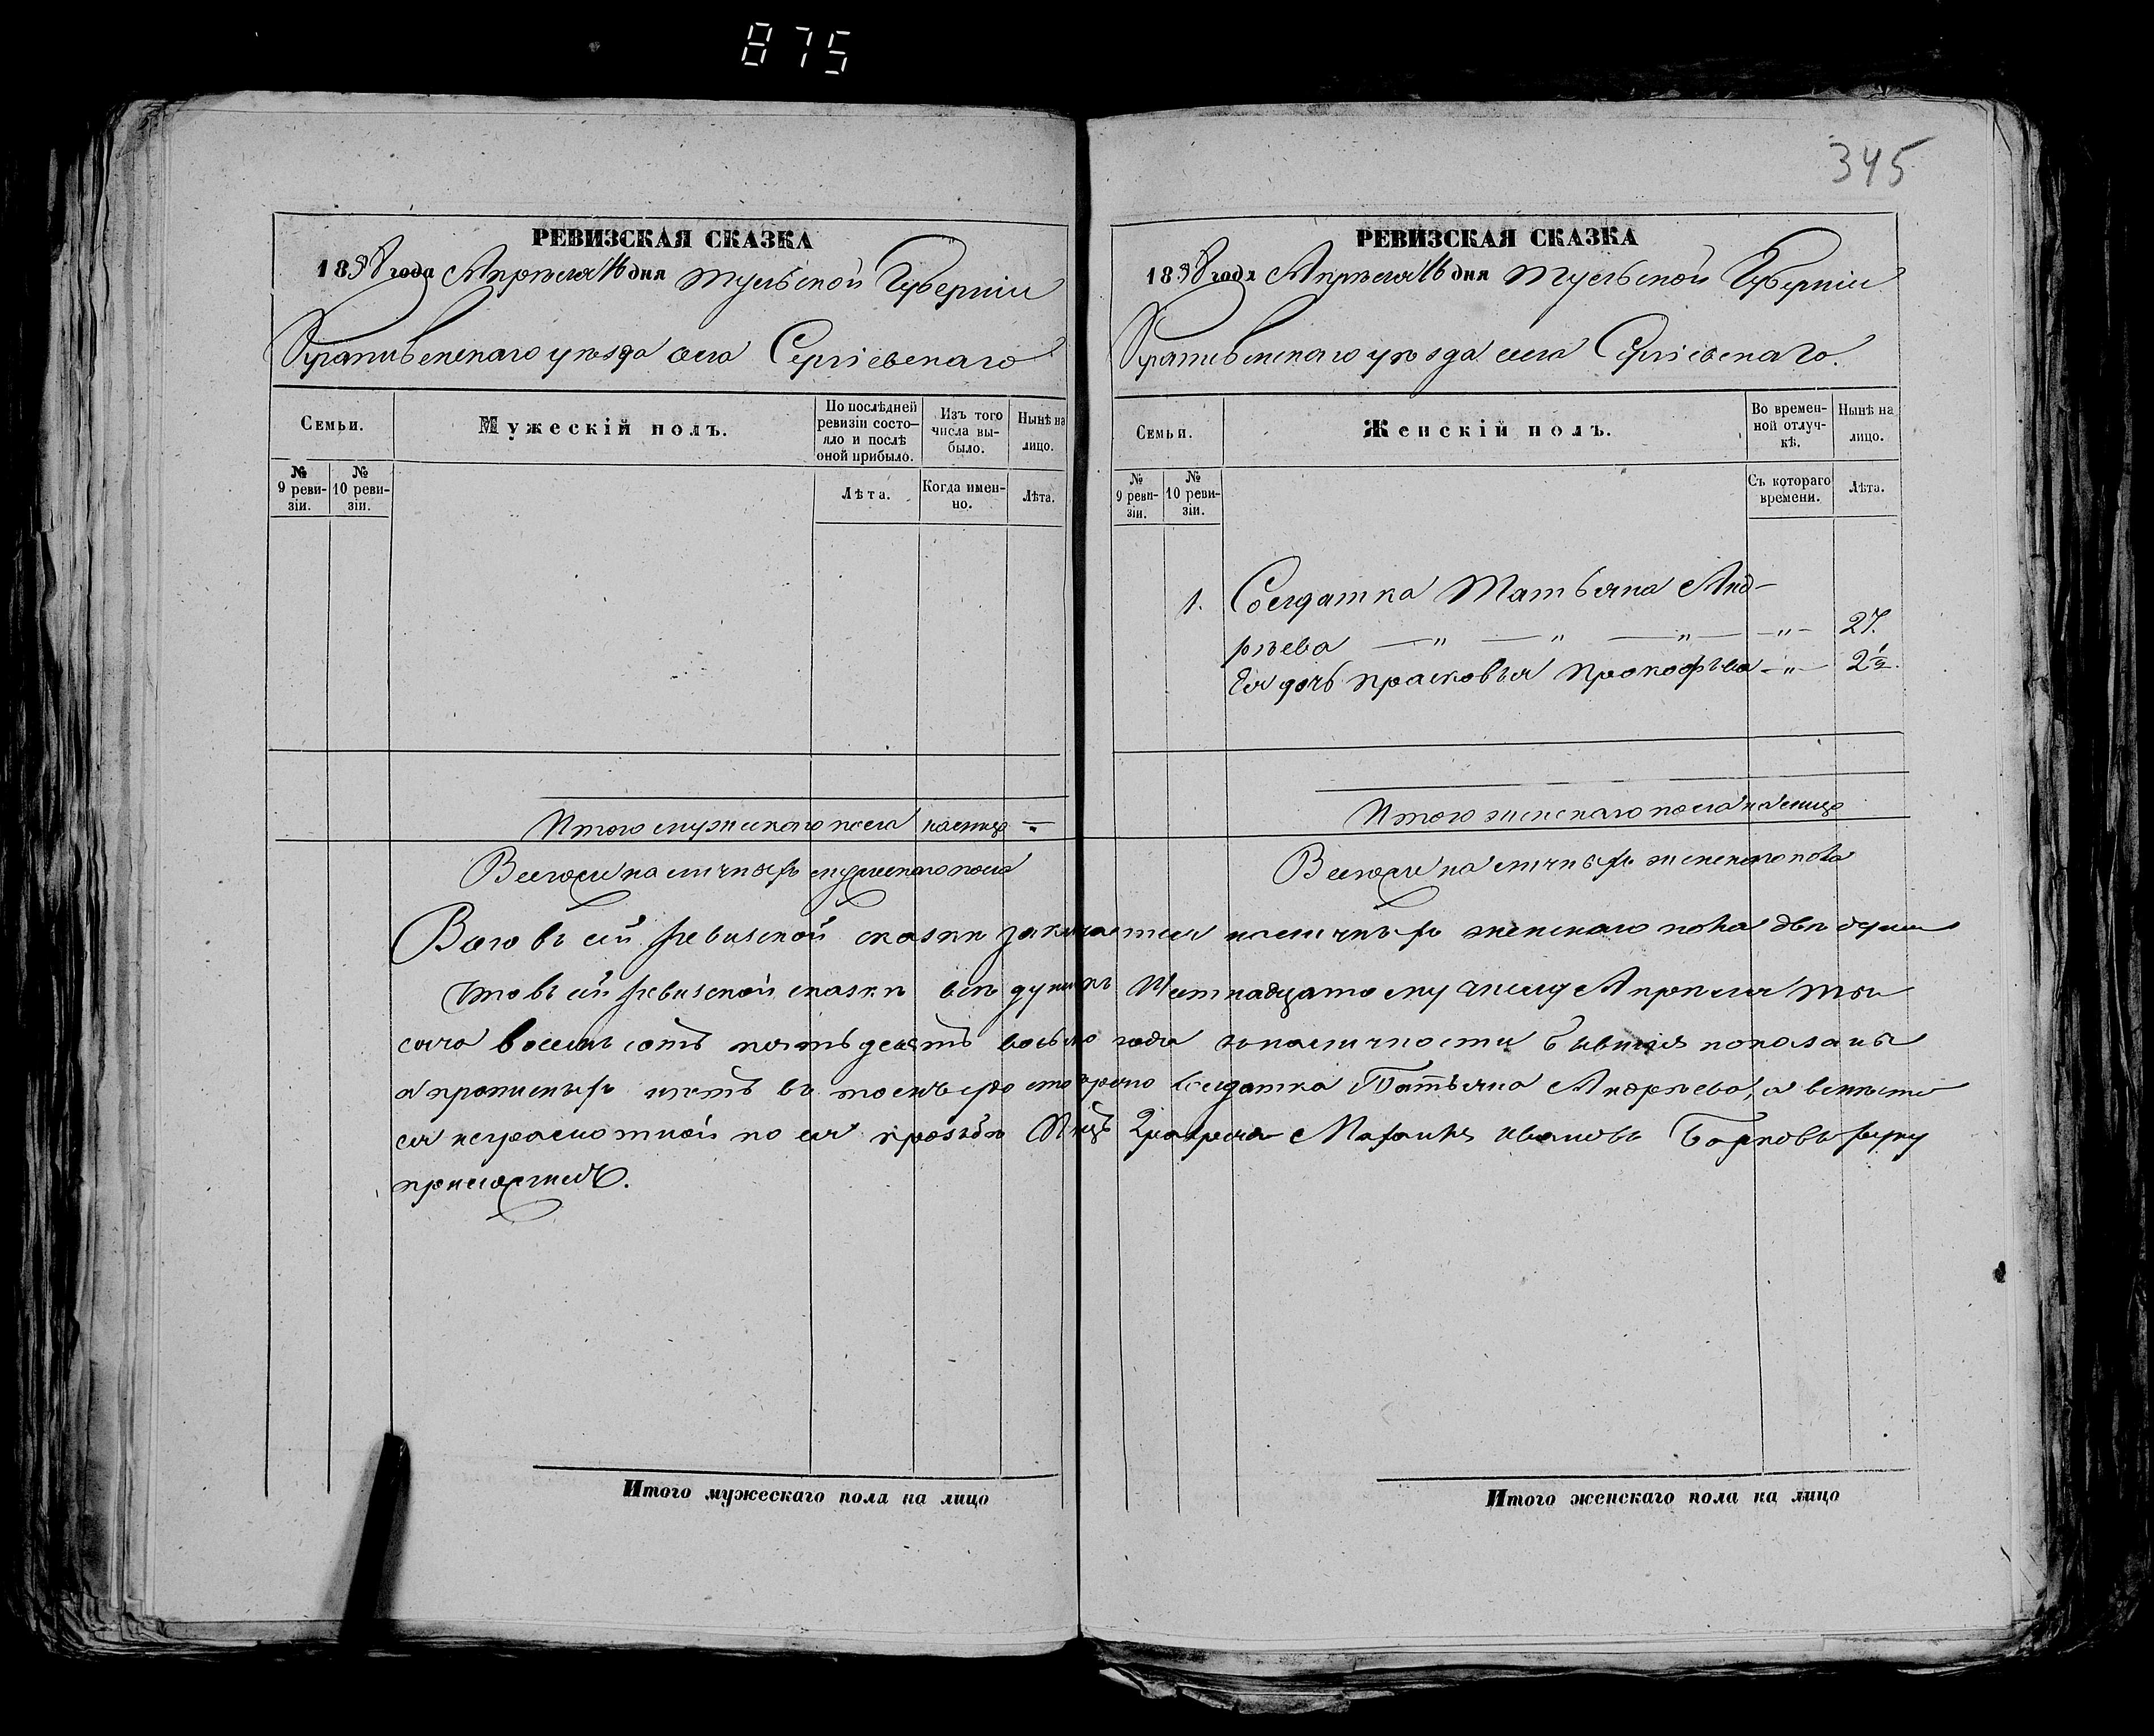 875
345
РЕВИЗСКАЯ СКАЗКА
1858 года Апреля 16 дня Тульской Губерніи
Крапивенскаго уѣзда села Сергіевскаго
Семьи.
Мужескій полъ.
По послѣдней ревизіи состояло и послѣ оной прибыло.
Изъ того числа выбыло.
Нынѣ на лицо.
№ 9 ревизіи.
№ 10 ревизіи.
Лѣта.
Когда именно.
Лѣта.
Итого мужскаго пола налицо — "
Всего же наличныхъ мужескаго пола
РЕВИЗСКАЯ СКАЗКА
1858 года Апреля 16 дня Тульской Губерніи
Крапивенскаго уѣзда села Сергіевскаго.
Семьи.
Женскій полъ.
Во временной отлучкѣ.
Нынѣ на лицо.
№ 9 ревизіи.
№ 10 ревизіи.
Съ котораго времени.
Лѣта.
1. Солдатка Татьяна Анд-
рѣева — " — " — " — " — 27.
Ея дочь Прасковья Прокофьева — " — 2½.
Итого женскаго пола налицо
Всего же наличныхъ женскаго пола
Всего въ сей ревизской сказкѣ заключается наличныхъ женскаго пола двѣ души
Что въ сей ревизской сказкѣ всѣ души къ Шестнадцатому числу Апреля Ты
сяча восемь сотъ пятьдесятъ восьмо года въ наличности бывшія показаны
а прописныхъ нѣтъ въ томъ удостовѣряю Солдатка Татьяна Андрѣева, а вмѣсто
ея неграмотной по ея прозьбѣ Иванов Барковъ руку
приложилъ.
Итого мужескаго пола на лицо
Итого женскаго пола на лицо